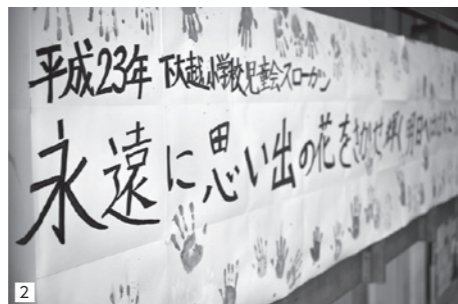 平成23年 下大越小学校児童会スローガン
永遠に思い出の花をさかせ輝く明日へ
2